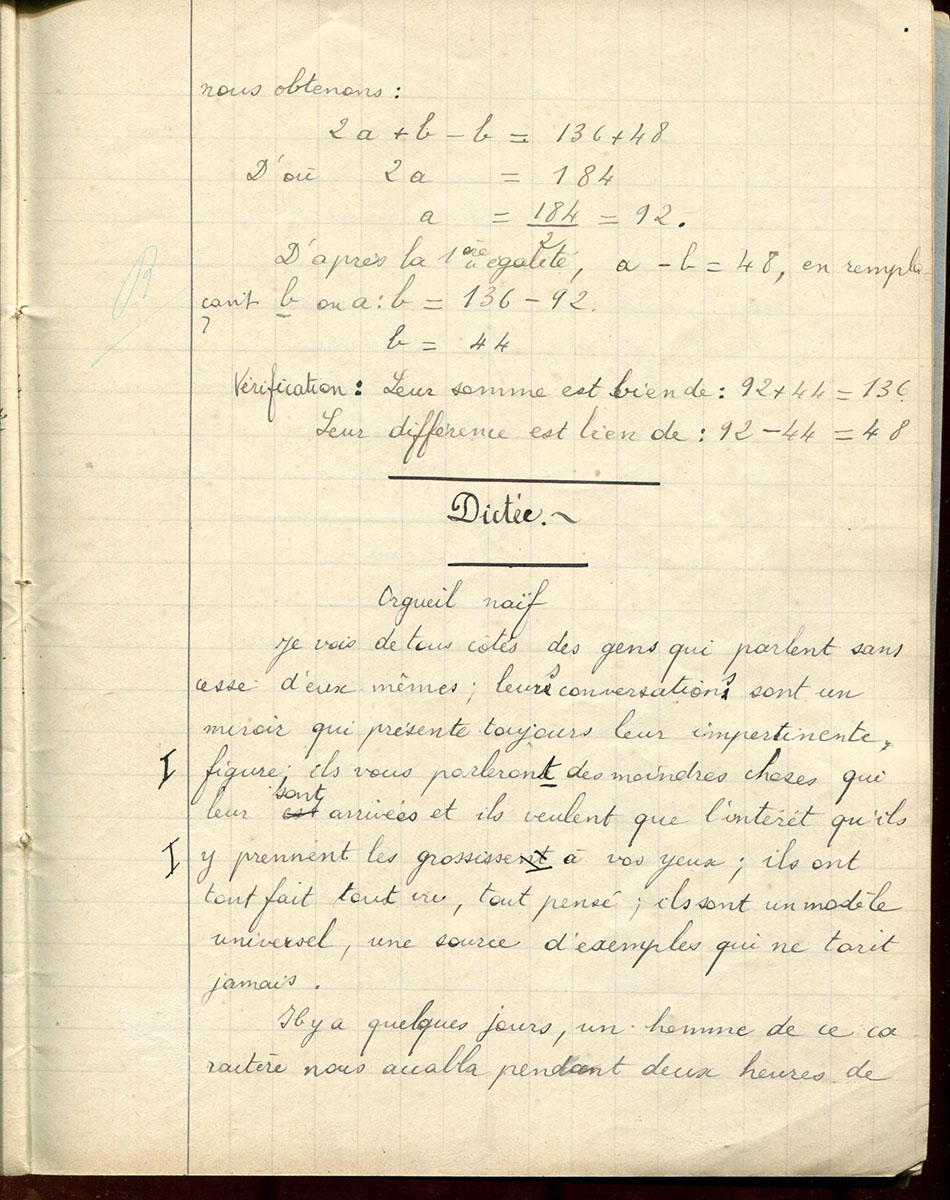 nous obtenons :
2a + b - b = 136 + 48
D'où 2a = 184
a = 184/2 = 92.
D'après la 1ère égalité, a - b = 48, en rempla-
çant b ou a : b = 136 - 92.
b = 44
Vérification : Leur somme est bien de : 92 + 44 = 136
Leur différence est bien de : 92 - 44 = 48
Dictée. ~
Orgueil naïf
Je vois de tous côtés des gens qui parlent sans
cesse d'eux mêmes ; leurs conversations sont un
miroir qui présente toujours leur impertinente,
I figure ; ils vous parleront des moindres choses qui
leur est sont arrivées et ils veulent que l'intérêt qu'ils
I y prennent les grossissent à vos yeux ; ils ont
tout fait tout vu, tout pensé ; ils sont un modèle
universel, une source d'exemples qui ne tarit
jamais.
Il y a quelques jours, un homme de ce ca
ractère nous accabla pendant deux heures de